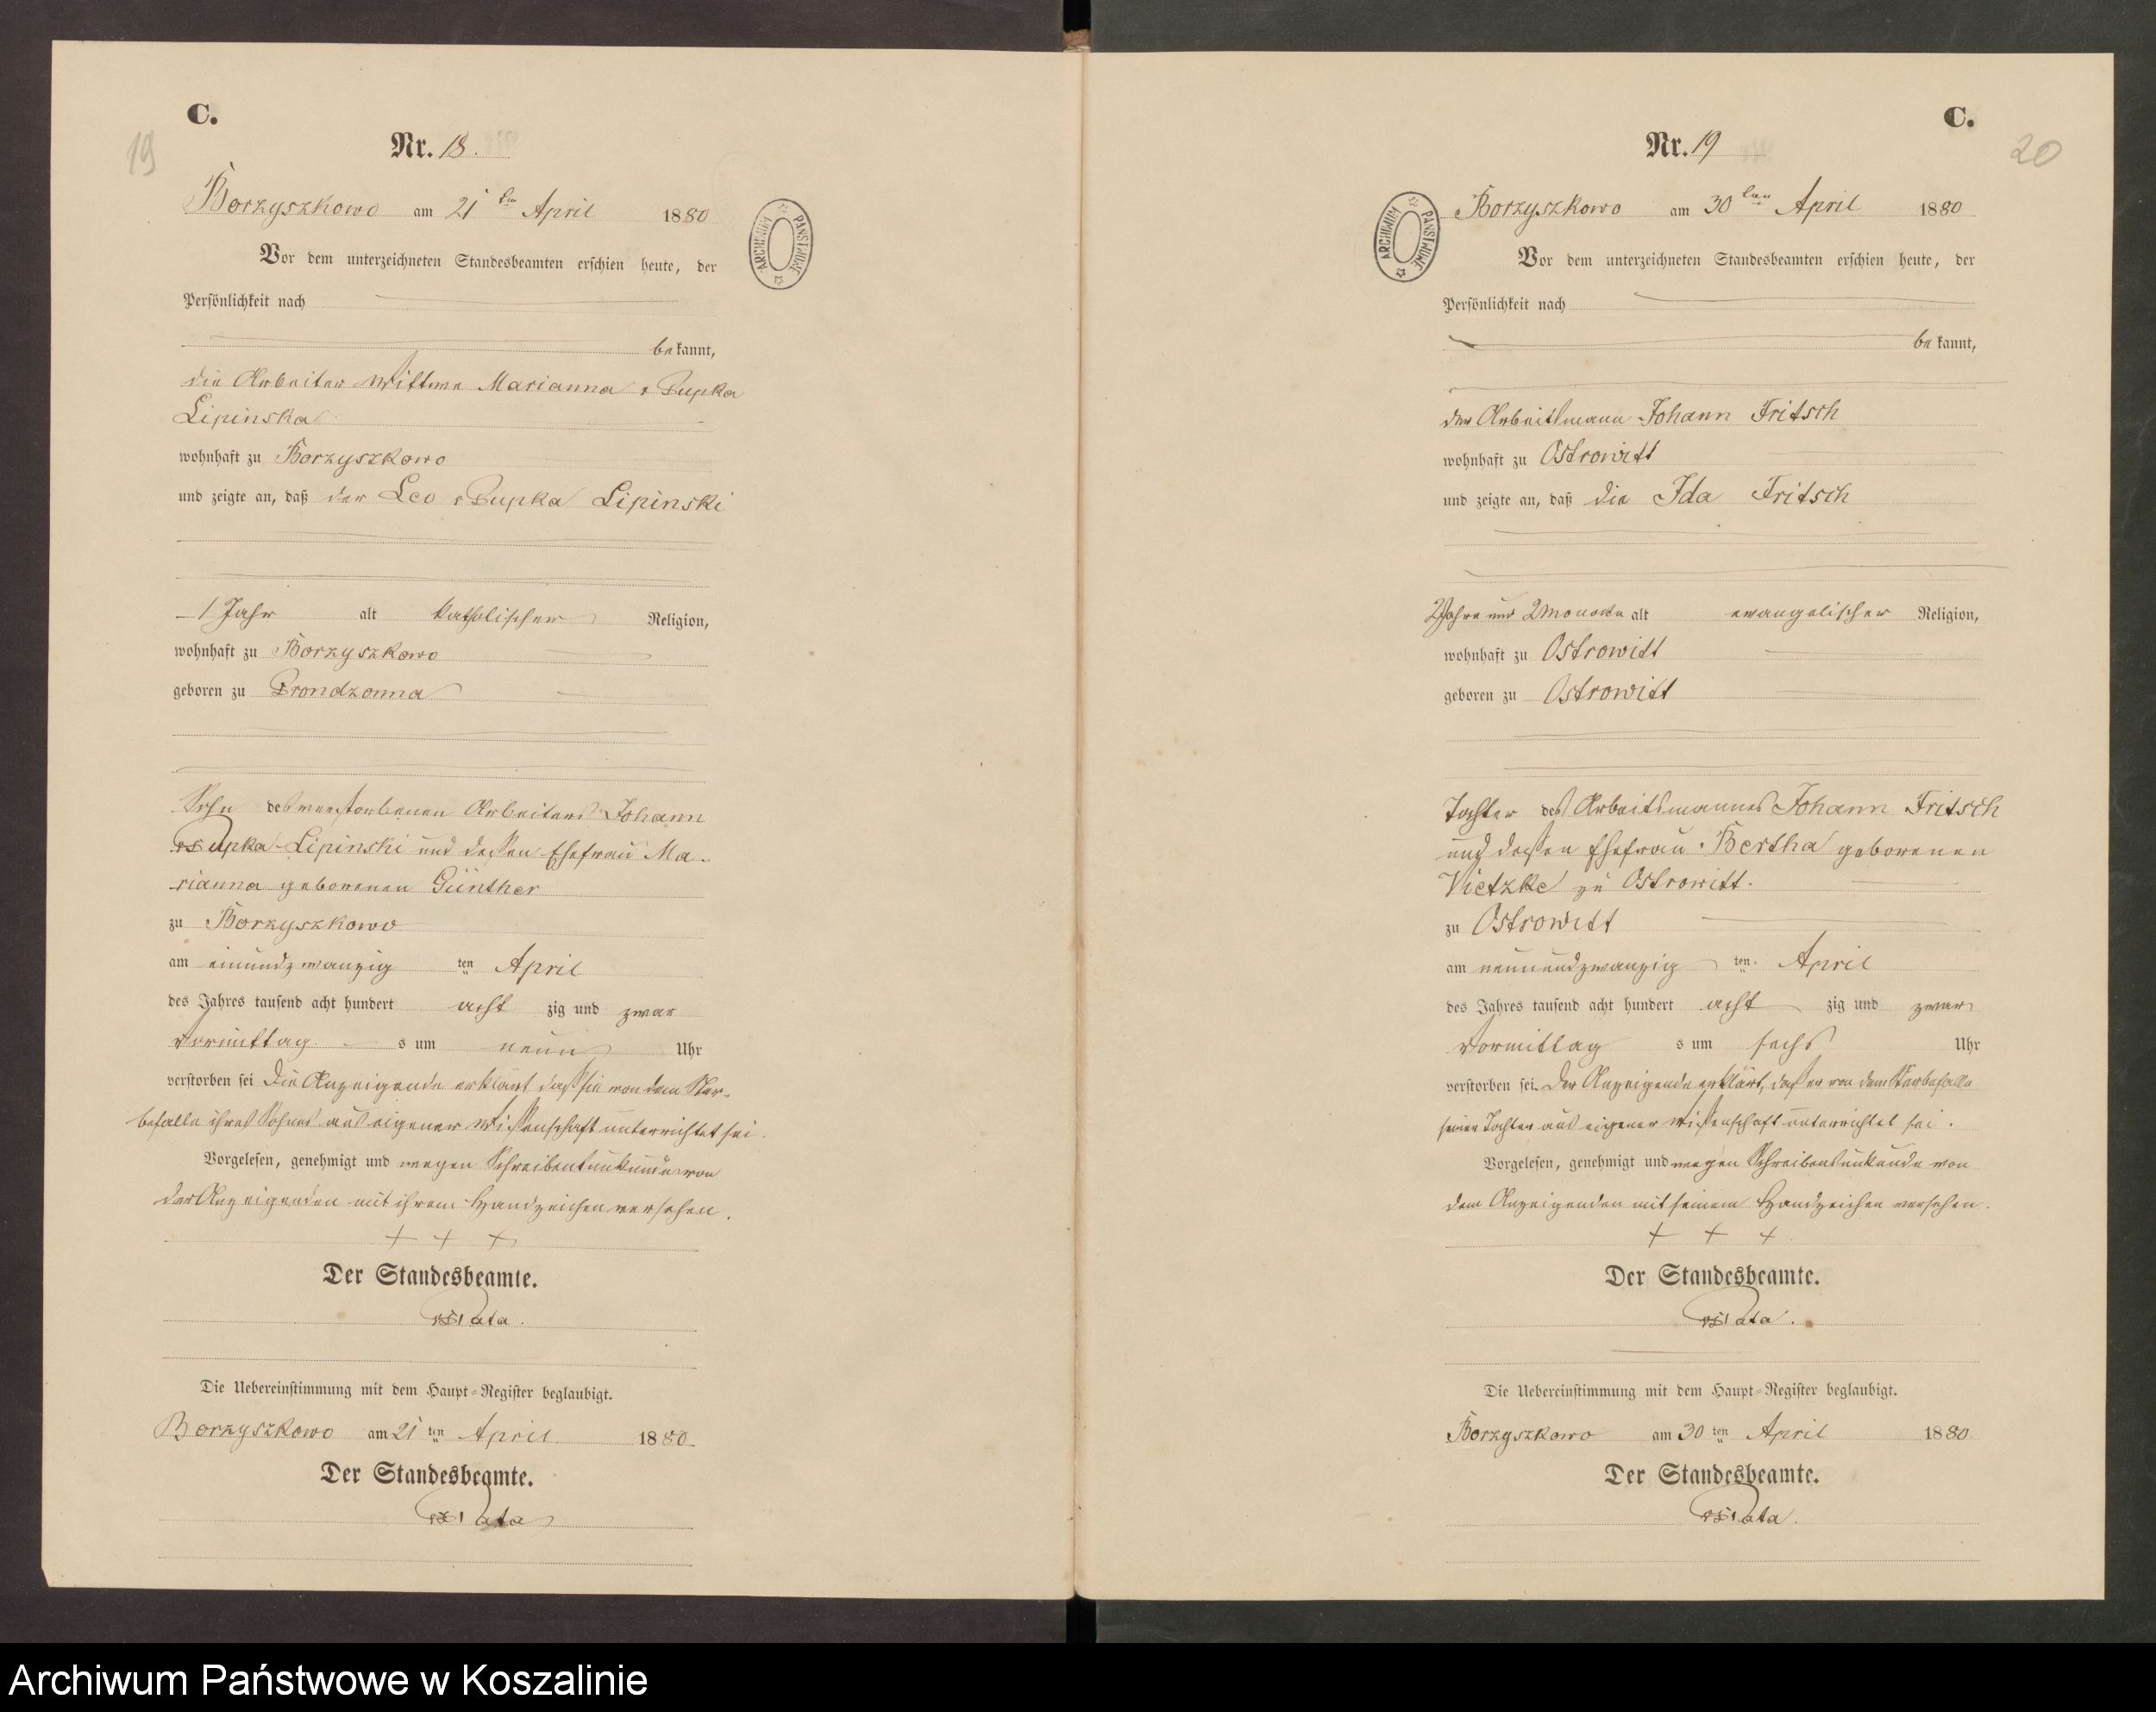 C.
19
Nr. 18.
Borzyszkowo am 21 ten April 1880
Vor dem unterzeichneten Standesbeamten erschien heute, der
Persönlichkeit nach
bekannt,
die Arbeiter Wittwe Marianna v Pupka
Lipinska
wohnhaft zu Borzyszkowo
und zeigte an, daß der Leo v Pupka Lipinski
1 Jahr alt katholischer Religion,
wohnhaft zu Borzyszkowo
geboren zu Prondzonna
Sohn des verstorbenen Arbeiters Johann
Pupka-Lipinski und dessen Ehefrau Ma-
rianna geborenen Günther
zu Borzyszkowo
am einundzwanzig ten April
des Jahres tausend acht hundert acht zig und zwar
Vormittag s um neun Uhr
verstorben sei Die Anzeigende erklärt daß sie von dem Ster-
befalle ihres Sohnes aus eigener Wissenschaft unterrichtet sei.
Vorgelesen, genehmigt und wegen Schreibensunkunde von
der Anzeigenden mit ihrem Handzeichen versehen.
+ + +
Der Standesbeamte.
Pata.
Die Uebereinstimmung mit dem Haupt-Register beglaubigt.
Borzyszkowo am 21 ten April 1880.
Der Standesbeamte.
Pata
ARCHIWUM PAŃSTWOWE
C.
20
Nr. 19
Borzyszkowo am 30 ten April 1880
Vor dem unterzeichneten Standesbeamten erschien heute, der
Persönlichkeit nach
bekannt,
der Arbeitsmann Johann Fritsch
wohnhaft zu Ostrowitt
und zeigte an, daß die Ida Fritsch
2 Jahre und 2 Monate alt evangelischer Religion,
wohnhaft zu Ostrowitt
geboren zu Ostrowitt
Tochter des Arbeitsmannes Johann Fritsch
und dessen Ehefrau Bertha geborenen
Vietzke zu Ostrowitt.
zu Ostrowitt
am neunundzwanzig ten April
des Jahres tausend acht hundert acht zig und zwar
Vormittag s um sechs Uhr
verstorben sei. Der Anzeigende erklärt, daß er von dem Sterbefalle
seiner Tochter aus eigener Wissenschaft unterrichtet sei.
Vorgelesen, genehmigt und wegen Schreibensunkunde von
dem Anzeigenden mit seinem Handzeichen versehen.
+ + +
Der Standesbeamte.
Pata.
Die Uebereinstimmung mit dem Haupt-Register beglaubigt.
Borzyszkowo am 30 ten April 1880
Der Standesbeamte.
Pata.
ARCHIWUM PAŃSTWOWE
Archiwum Państwowe w Koszalinie